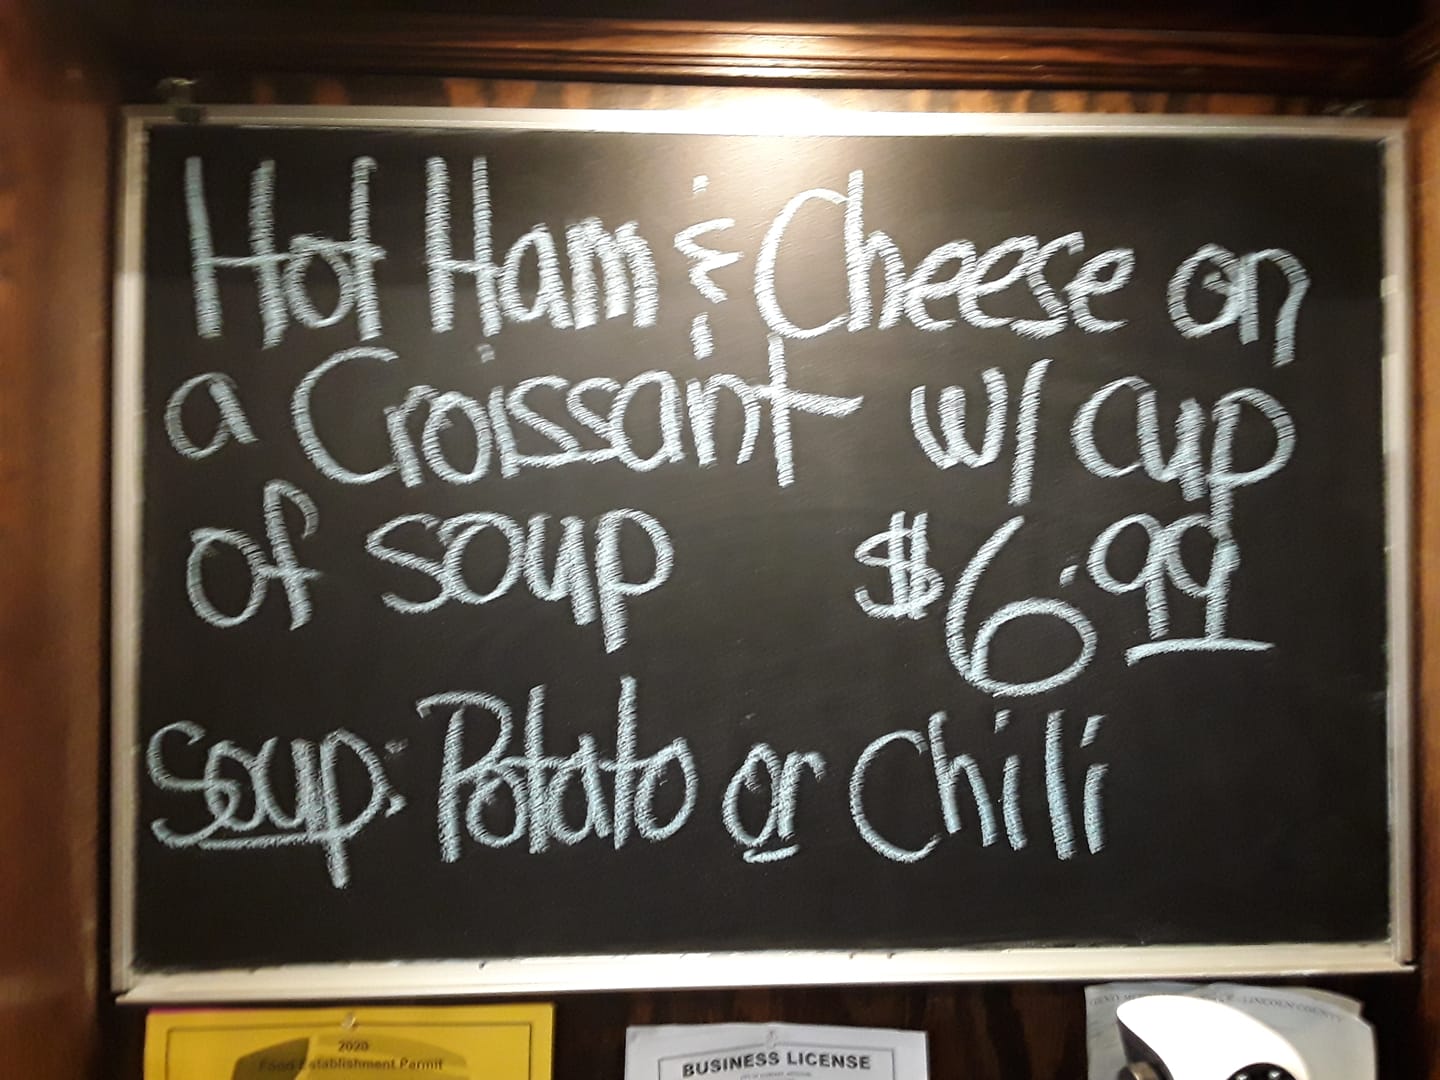 Hot Ham & Cheese on
a Croissant w/ cup
of soup $6.99
Soup: Potato or Chili
2020
Food Establishment Permit
BUSINESS LICENSE
LINCOLN COUNTY